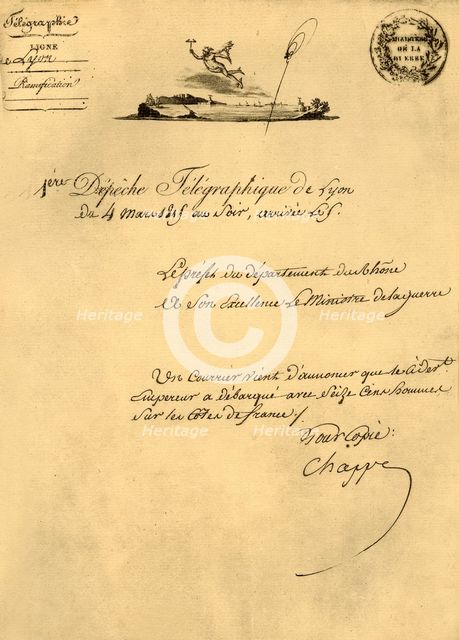 Télégraphie
LIGNE
de Lyon
Ramification
MINISTERE
DE LA
GUERRE
1ère Dépêche Télégraphique de Lyon
du 4 Mars 1815 au Soir, arrivée Le 5.
Le préfet du département du Rhône
A Son Excellence Le Ministre de la guerre
Un Courrier vient d'annoncer que le
Empereur a débarqué avec Seize Cens hommes
Sur les Côtes de france ./
Pour Copie :
Chappe
Heritage Heritage
Heritage Heritage
Images Images